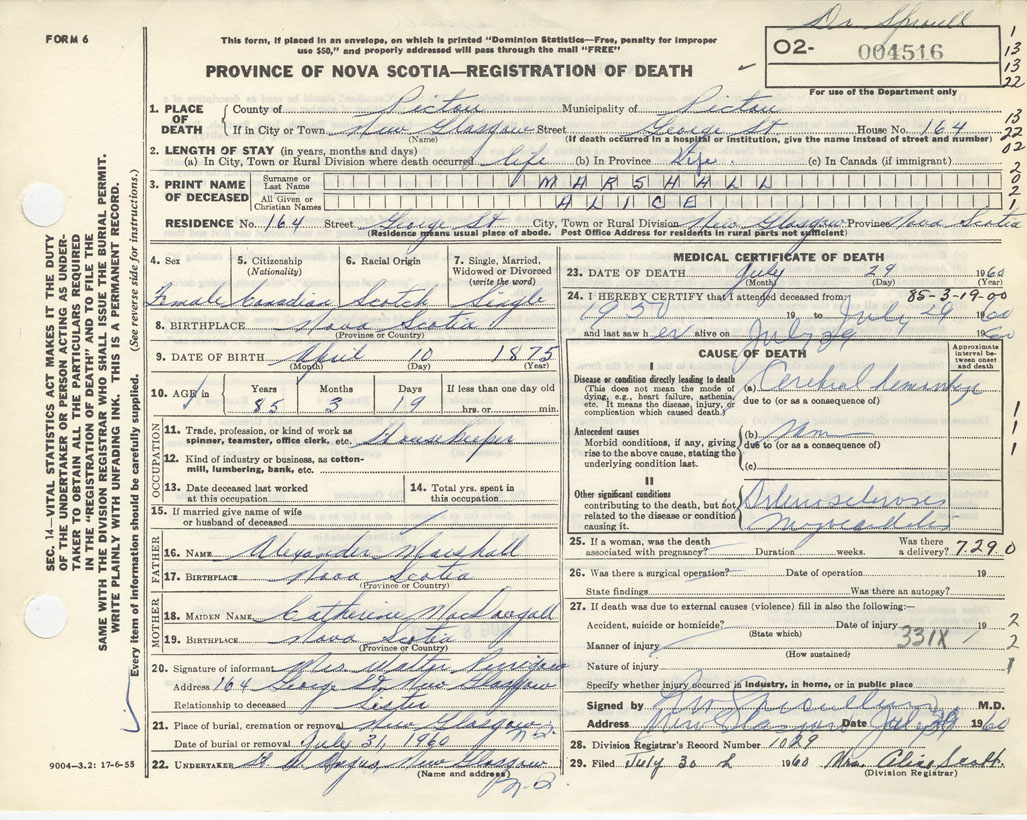 FORM 6
This form, if placed in an envelope, on which is printed "Dominion Statistics—Free, penalty for improper
use $50," and properly addressed will pass through the mail "FREE"
PROVINCE OF NOVA SCOTIA—REGISTRATION OF DEATH
Dr. Sproull
O2- 004516
For use of the Department only
1
13
13
22
13
22
02
1. PLACE OF DEATH County of Pictou Municipality of Pictou
If in City or Town New Glasgow Street George St House No. 164
(Name) (If death occurred in a hospital or institution, give the name instead of street and number)
2. LENGTH OF STAY (in years, months and days)
(a) In City, Town or Rural Division where death occurred life (b) In Province life (c) In Canada (if immigrant)
3. PRINT NAME OF DECEASED
Surname or Last Name MARSHALL
All Given or Christian Names ALICE
RESIDENCE No. 164 Street George St City, Town or Rural Division New Glasgow Province Nova Scotia
(Residence means usual place of abode. Post Office Address for residents in rural parts not sufficient)
SEC. 14—VITAL STATISTICS ACT MAKES IT THE DUTY
OF THE UNDERTAKER OR PERSON ACTING AS UNDER-
TAKER TO OBTAIN ALL THE PARTICULARS REQUIRED
IN THE "REGISTRATION OF DEATH" AND TO FILE THE
SAME WITH THE DIVISION REGISTRAR WHO SHALL ISSUE THE BURIAL PERMIT.
WRITE PLAINLY WITH UNFADING INK. THIS IS A PERMANENT RECORD.
Every item of information should be carefully supplied. (See reverse side for instructions.)
4. Sex Female
5. Citizenship (Nationality) Canadian
6. Racial Origin Scotch
7. Single, Married, Widowed or Divorced (write the word) Single
8. BIRTHPLACE Nova Scotia
(Province or Country)
9. DATE OF BIRTH April 10 1875
(Month) (Day) (Year)
10. AGE in Years Months Days If less than one day old
85 3 19 hrs. or min.
OCCUPATION
11. Trade, profession, or kind of work as
spinner, teamster, office clerk, etc. Housekeeper
12. Kind of industry or business, as cotton-
mill, lumbering, bank, etc.
13. Date deceased last worked
at this occupation
14. Total yrs. spent in
this occupation
15. If married give name of wife
or husband of deceased
FATHER
16. NAME Alexander Marshall
17. BIRTHPLACE Nova Scotia
(Province or Country)
MOTHER
18. MAIDEN NAME Catherine MacDougall
19. BIRTHPLACE Nova Scotia
(Province or Country)
20. Signature of informant Mrs Walter
Address 164 George St. New Glasgow
Relationship to deceased Sister
21. Place of burial, cremation or removal New Glasgow, N.S.
Date of burial or removal July 31, 1960
22. UNDERTAKER Angus, New Glasgow
(Name and address) N.S.
9004—3.2: 17-6-55
MEDICAL CERTIFICATE OF DEATH
23. DATE OF DEATH July 29 1960
(Month) (Day) (Year)
85-3-19-00
24. I HEREBY CERTIFY that I attended deceased from:
1950 19 to July 29 1960
and last saw her alive on July 29 1960
CAUSE OF DEATH
Approximate interval between onset and death
I
Disease or condition directly leading to death
(This does not mean the mode of
dying, e.g., heart failure, asthenia,
etc. It means the disease, injury, or
complication which caused death.)
(a) Cerebral Hemorrhage
due to (or as a consequence of)
Antecedent causes
Morbid conditions, if any, giving
rise to the above cause, stating the
underlying condition last.
(b)
due to (or as a consequence of)
(c)
II
Other significant conditions
contributing to the death, but not
related to the disease or condition
causing it.
Arteriosclerosis
Myocarditis
25. If a woman, was the death
associated with pregnancy? Duration weeks. Was there
a delivery? 7.29.0
26. Was there a surgical operation? Date of operation 19
State findings Was there an autopsy?
27. If death was due to external causes (violence) fill in also the following:
Accident, suicide or homicide? Date of injury 19
(State which)
Manner of injury 331X
(How sustained)
Nature of injury
Specify whether injury occurred in industry, in home, or in public place
Signed by M.D.
Address New Glasgow Date July 30 1960
28. Division Registrar's Record Number 1029
29. Filed July 30 1960 Mrs. Aline Scott
(Division Registrar)